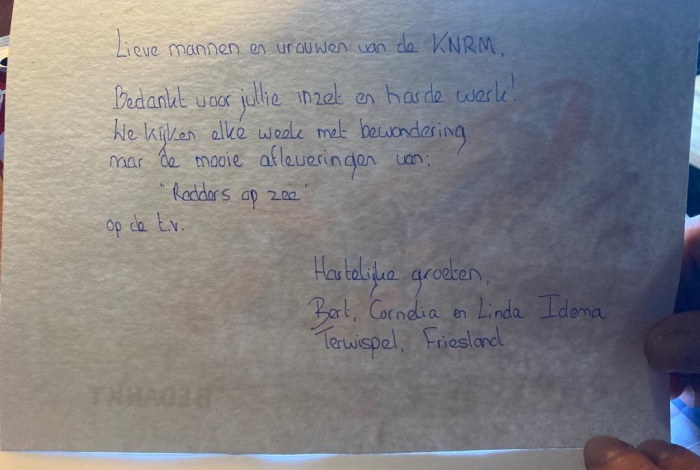 Lieve mannen en vrouwen van de KNRM,
Bedankt voor jullie inzet en harde werk!
We kijken elke week met bewondering
naar de mooie afleveringen van:
"Redders op zee"
op de t.v.
Hartelijke groeten,
Bert, Cornelia en Linda Idema
Terwispel, Friesland
BEDANKT